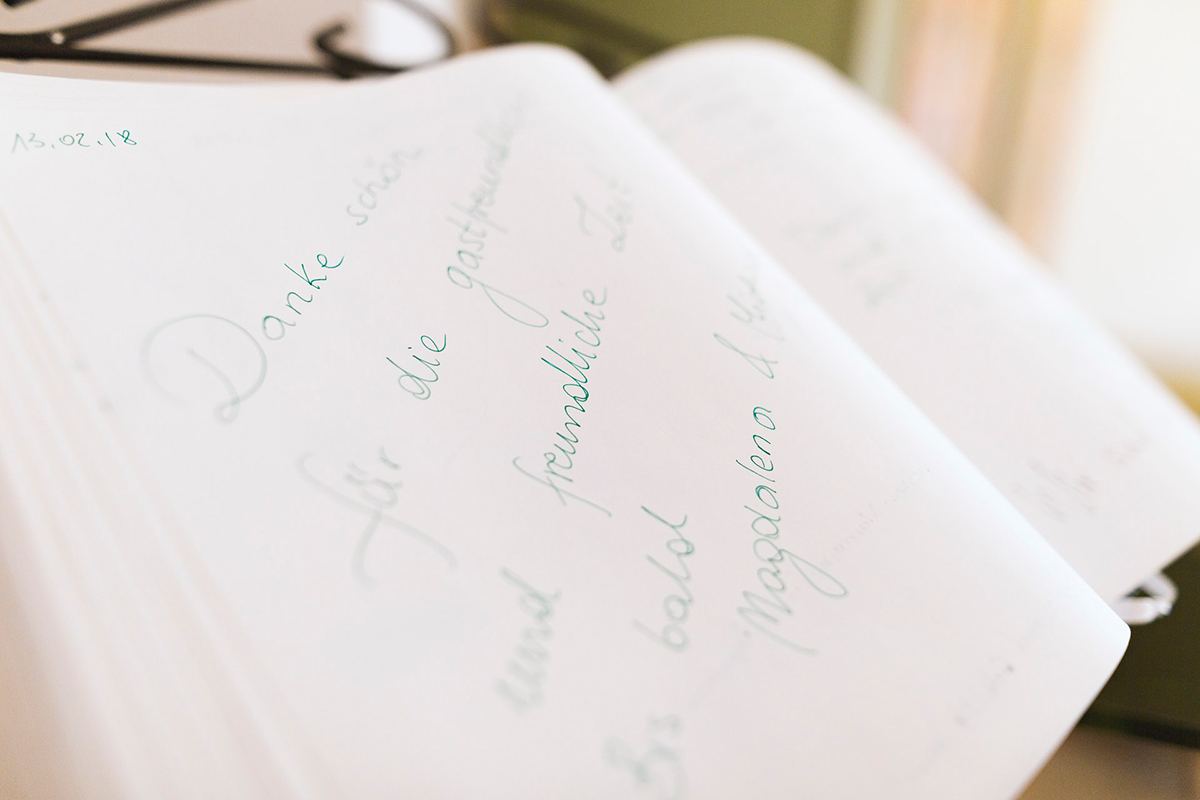 13.02.18
Danke schön
für die gastfreundliche
und freundliche Zeit
Bis bald
Magdalena &